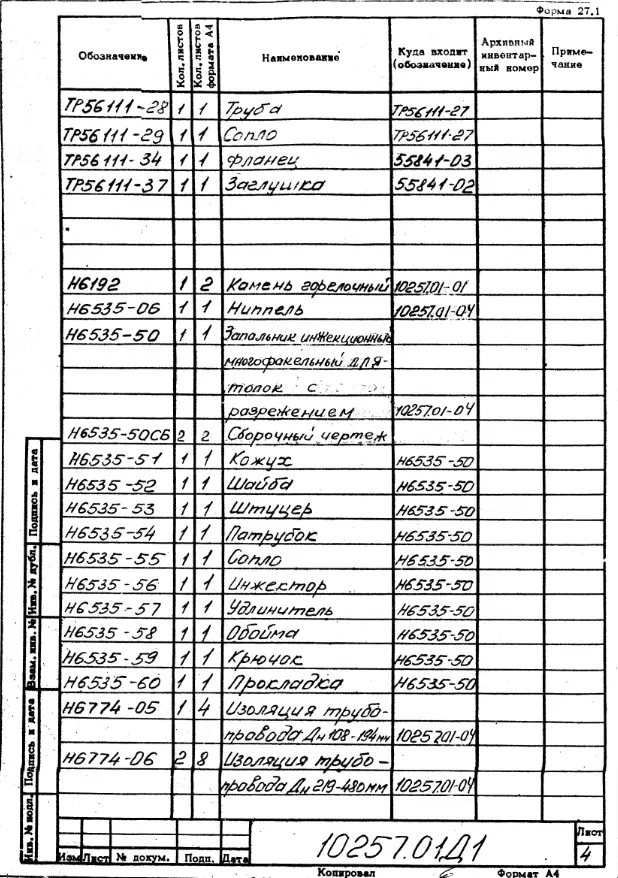 Форма 27.1
Обозначение Кол. листов Кол. листов формата А4 Наименование Куда входит (обозначение) Архивный инвентарный номер Примечание
ТР56111-28 1 1 Труба ТР56111-27
ТР56111-29 1 1 Сопло ТР56111-27
ТР56111-34 1 1 Фланец 55841-03
ТР56111-37 1 1 Заглушка 55841-02
Н6192 1 2 Камень горелочный 10257.01-01
Н6535-06 1 1 Ниппель 10257.01-04
Н6535-50 1 1 Запальник инжекционный
многофакельный для
топок с
разрежением 10257.01-04
Н6535-50СБ 2 2 Сборочный чертеж
Н6535-51 1 1 Кожух Н6535-50
Н6535-52 1 1 Шайба Н6535-50
Н6535-53 1 1 Штуцер Н6535-50
Н6535-54 1 1 Патрубок Н6535-50
Н6535-55 1 1 Сопло Н6535-50
Н6535-56 1 1 Инжектор Н6535-50
Н6535-57 1 1 Удлинитель Н6535-50
Н6535-58 1 1 Обойма Н6535-50
Н6535-59 1 1 Крючок Н6535-50
Н6535-60 1 1 Прокладка Н6535-50
Н6774-05 1 4 Изоляция трубо-
провода Дн 108-194мм 10257.01-04
Н6774-06 2 8 Изоляция трубо-
провода Дн 219-480мм 10257.01-04
Подпись и дата
Инв. № дубл.
Взам. инв. №
Подпись и дата
Инв. № подл.
Изм Лист № докум. Подп. Дата
10257.01Д1
Лист
4
Копировал Формат А4